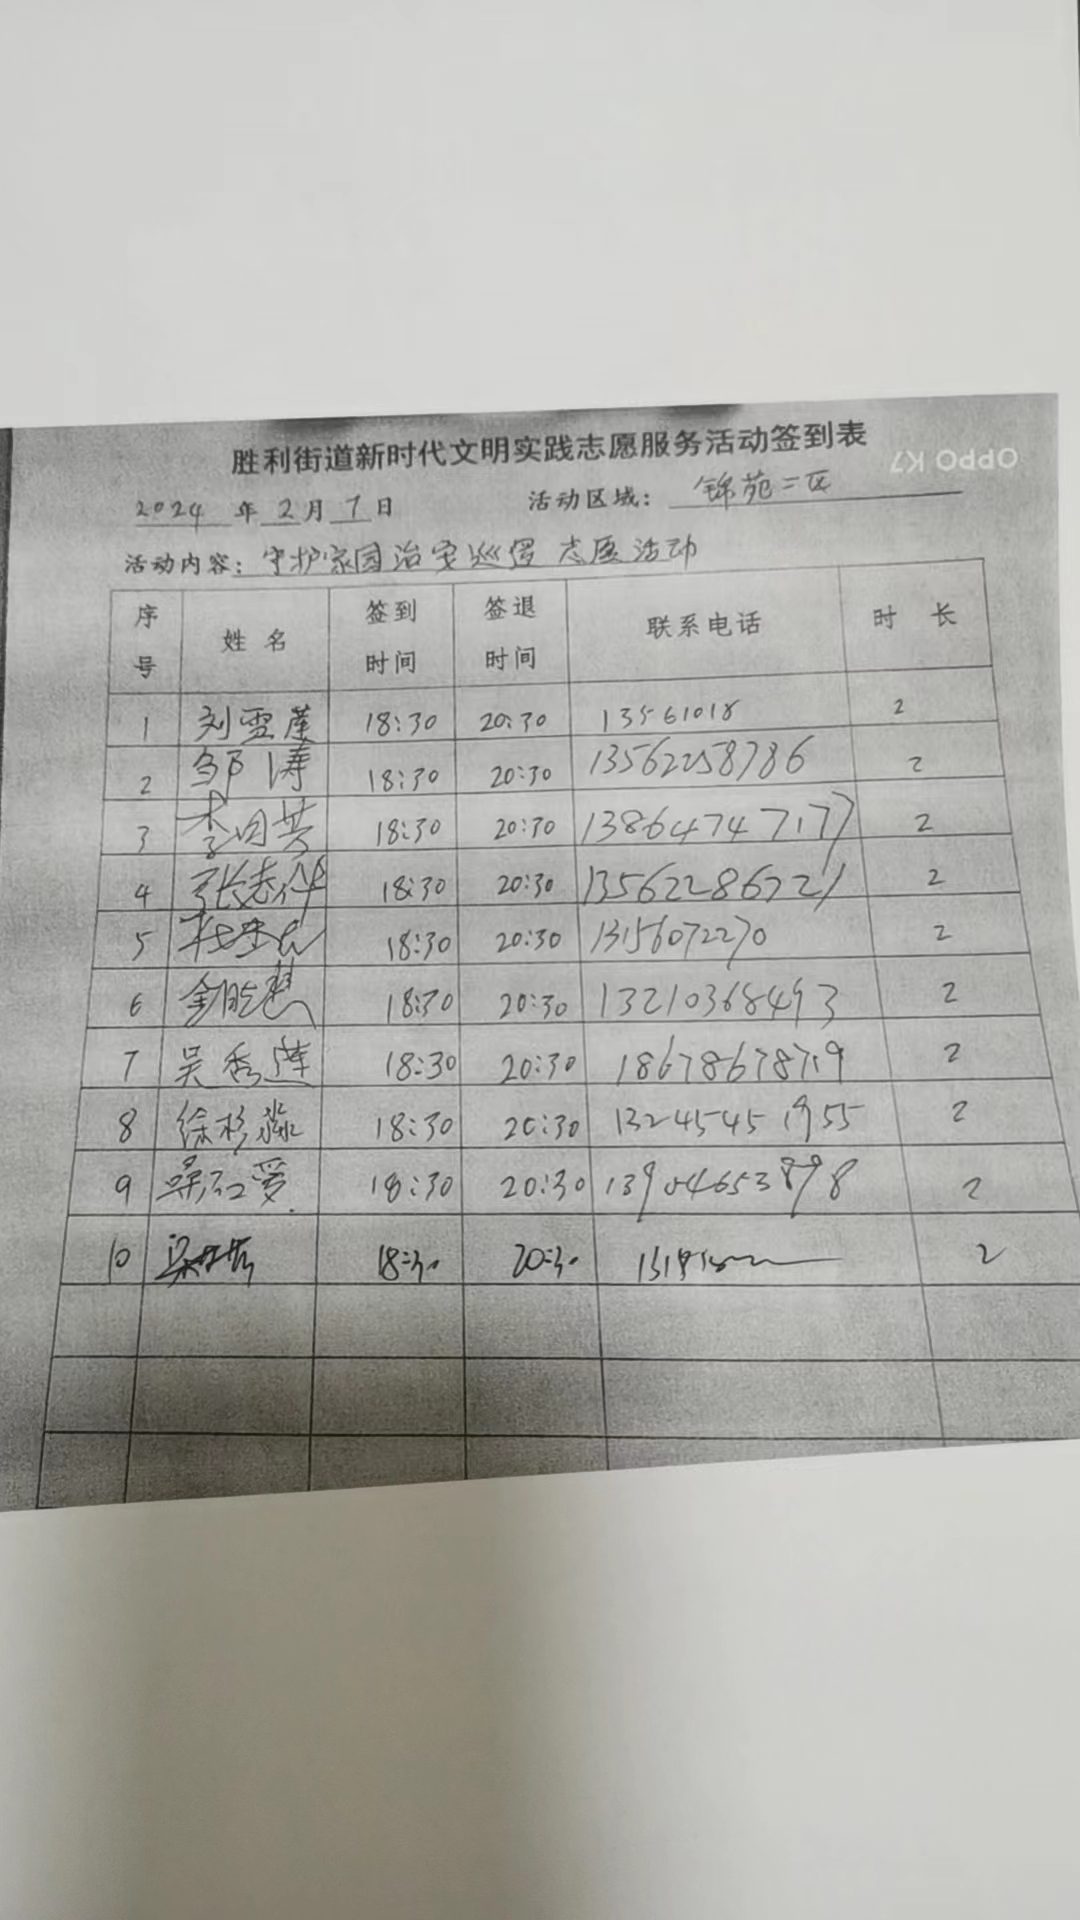 胜利街道新时代文明实践志愿服务活动签到表
OPPO K7
2024年2月1日 活动区域：锦苑二区
活动内容：守护家园治安巡逻 志愿活动
序号 姓名 签到时间 签退时间 联系电话 时长
1 刘雪莲 18:30 20:30 13561018 2
2 邹涛 18:30 20:30 13562258786 2
3 李 18:30 20:30 13864747177 2
4 张志伟 18:30 20:30 13562286721 2
5 18:30 20:30 13156072270 2
6 18:30 20:30 13210368493 2
7 吴秀莲 18:30 20:30 18678678719 2
8 徐 18:30 20:30 13245451955 2
9 18:30 20:30 13904653898 2
10 18:30 20:30 2